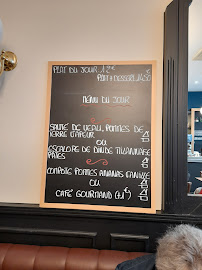 PLAT DU JOUR 12€
PLAT+DESSERT
MENU DU JOUR
SAUTÉ DE VEAU, POMMES DE
TERRE VAPEUR
OU
ESCALOPE DE DINDE
PATES
COMPOTE POMMES ANANAS VANILLE
OU
CAFÉ GOURMAND